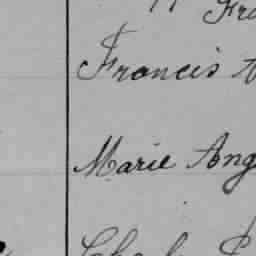 Fra
Francis A
Marie Ang